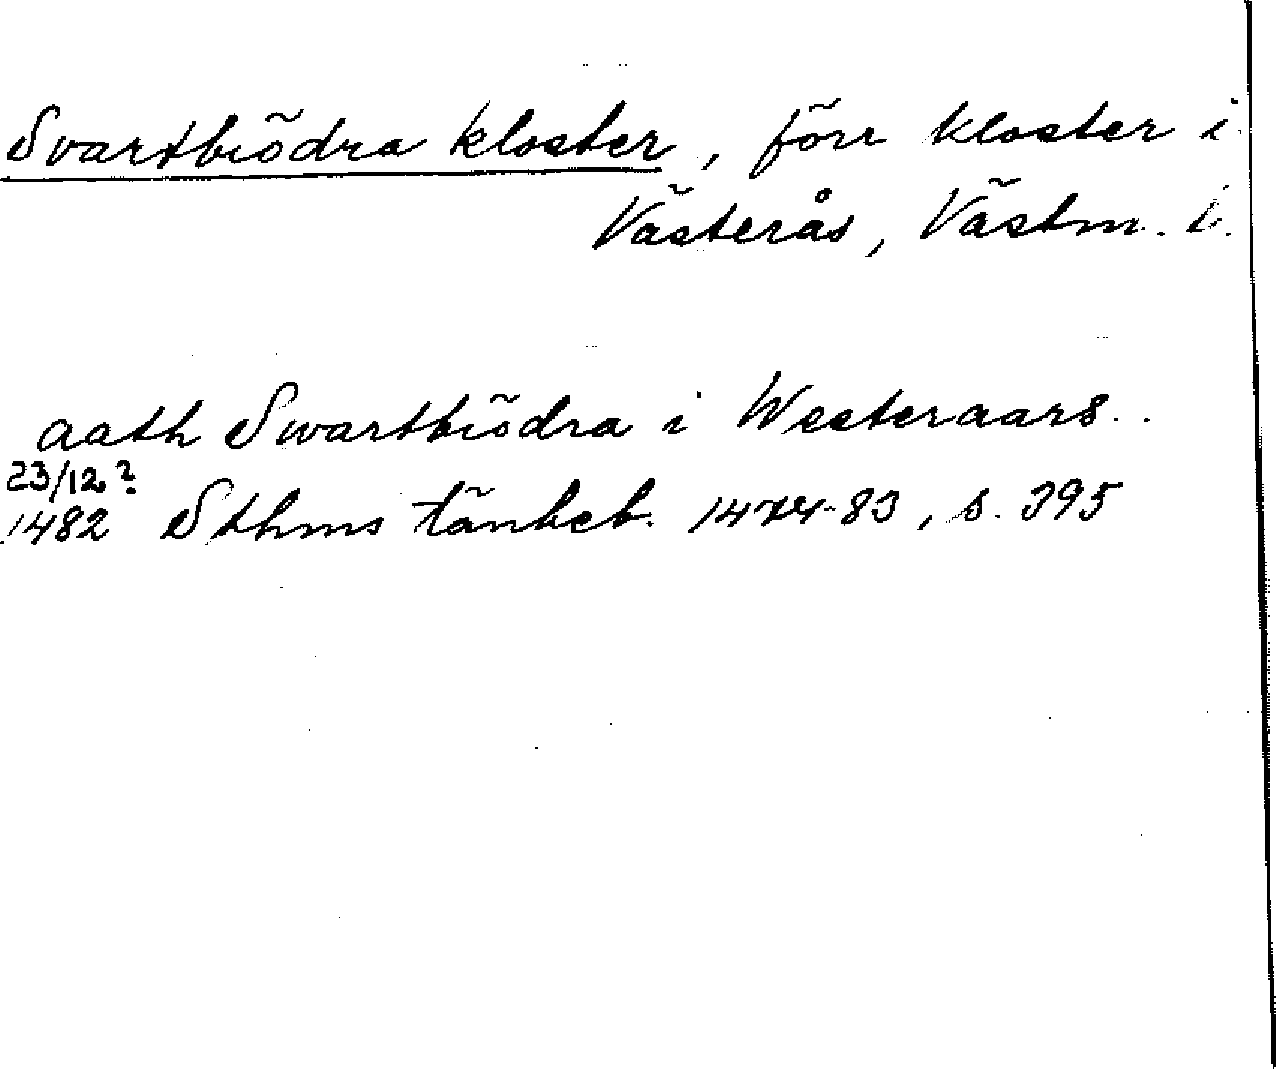 Svartbrödra kloster, förr kloster i
Västerås, Västm. l.
aath Swartbrödra i Westeraars..
23/12?
1482 Sthms tänkeb. 1474-83, s. 395